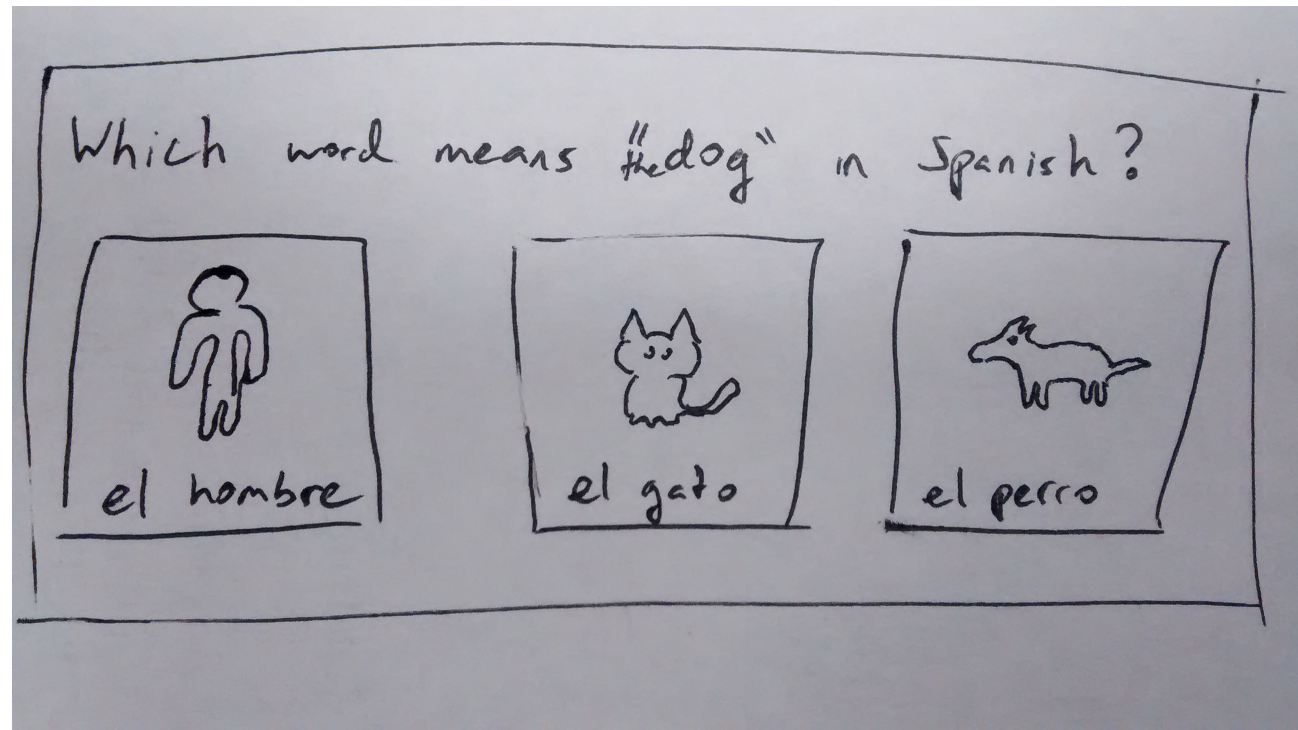 Which word means "the dog" in Spanish?
el hombre
el gato
el perro